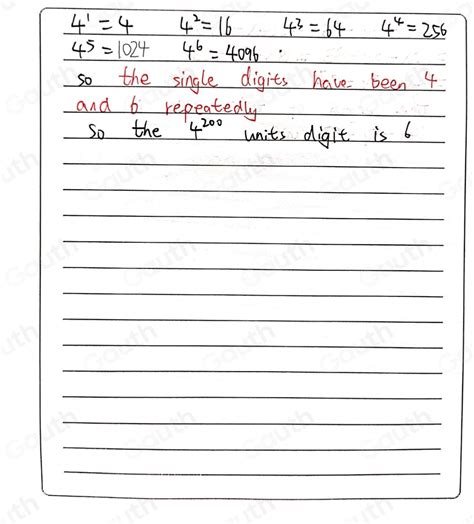 4¹ = 4 4² = 16 4³ = 64 4⁴ = 256
4⁵ = 1024 4⁶ = 4096 .
so the single digits have been 4
and 6 repeatedly
So the 4²⁰⁰ units digit is 6
Gauth